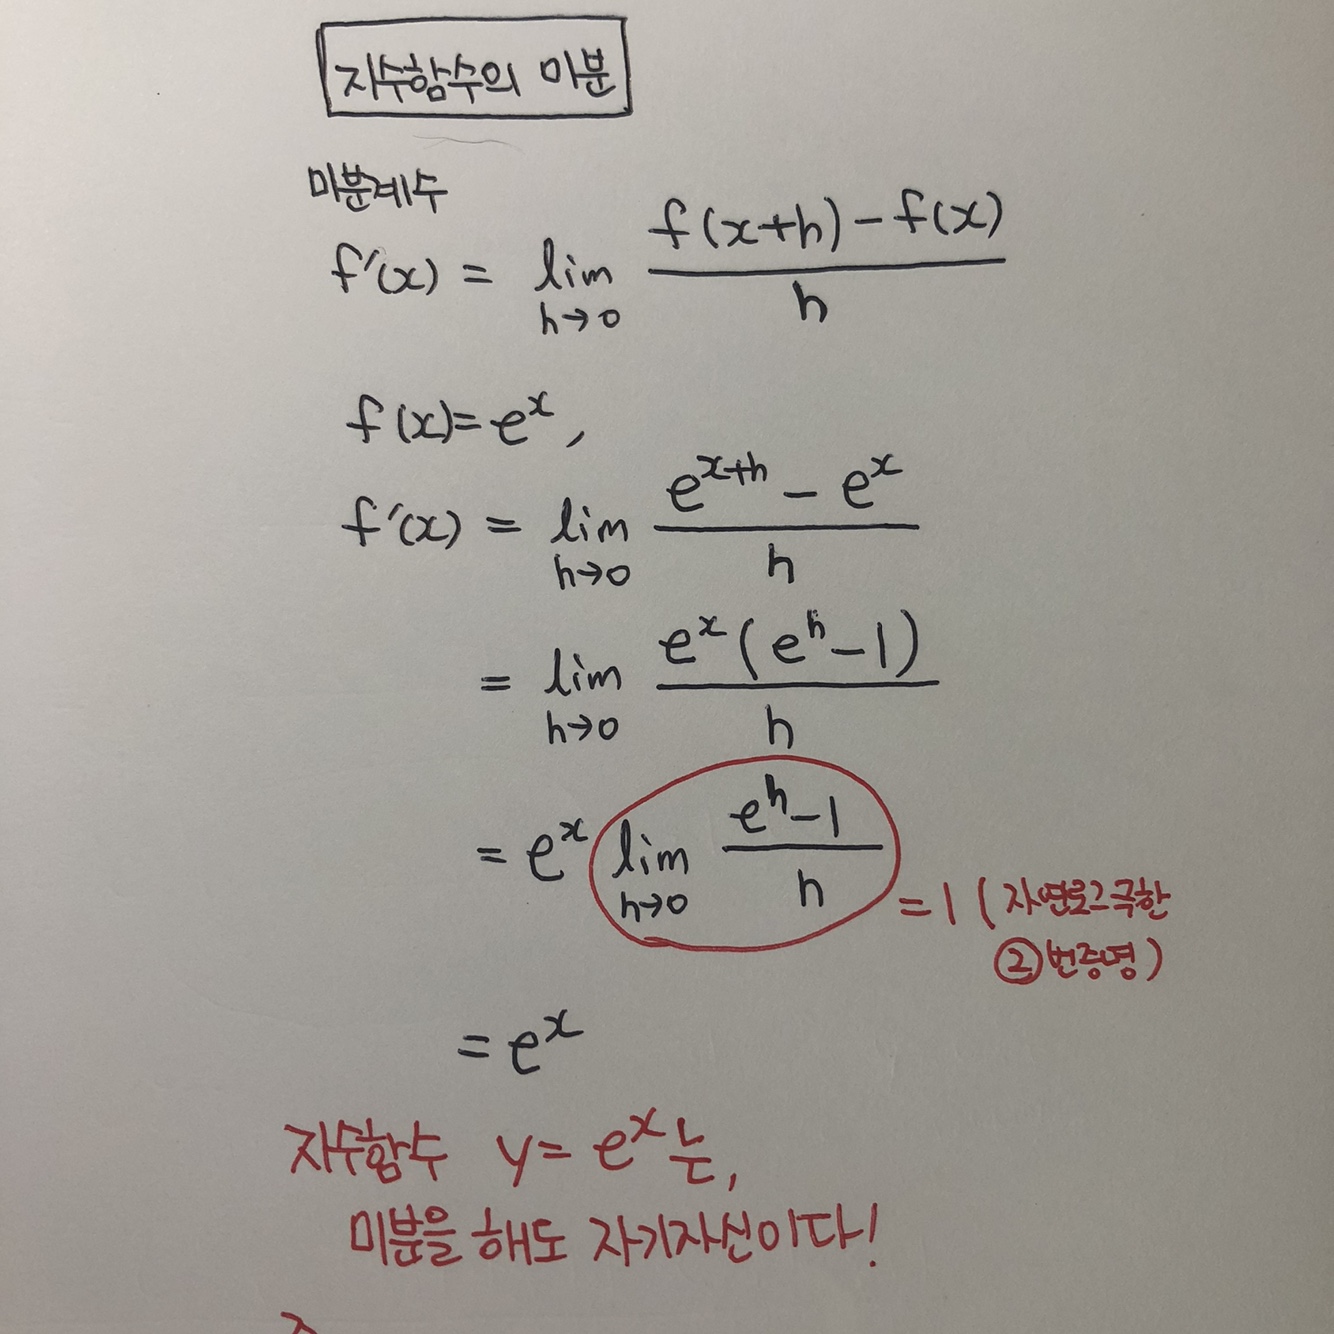 지수함수의 미분
미분계수
f'(x) = lim h→0 f(x+h)-f(x) / h
f(x)=e^x,
f'(x) = lim h→0 e^(x+h) - e^x / h
= lim h→0 e^x(e^h-1) / h
= e^x lim h→0 e^h-1 / h = 1 (자연로그극한
②번증명)
= e^x
지수함수 y= e^x는,
미분을 해도 자기자신이다!